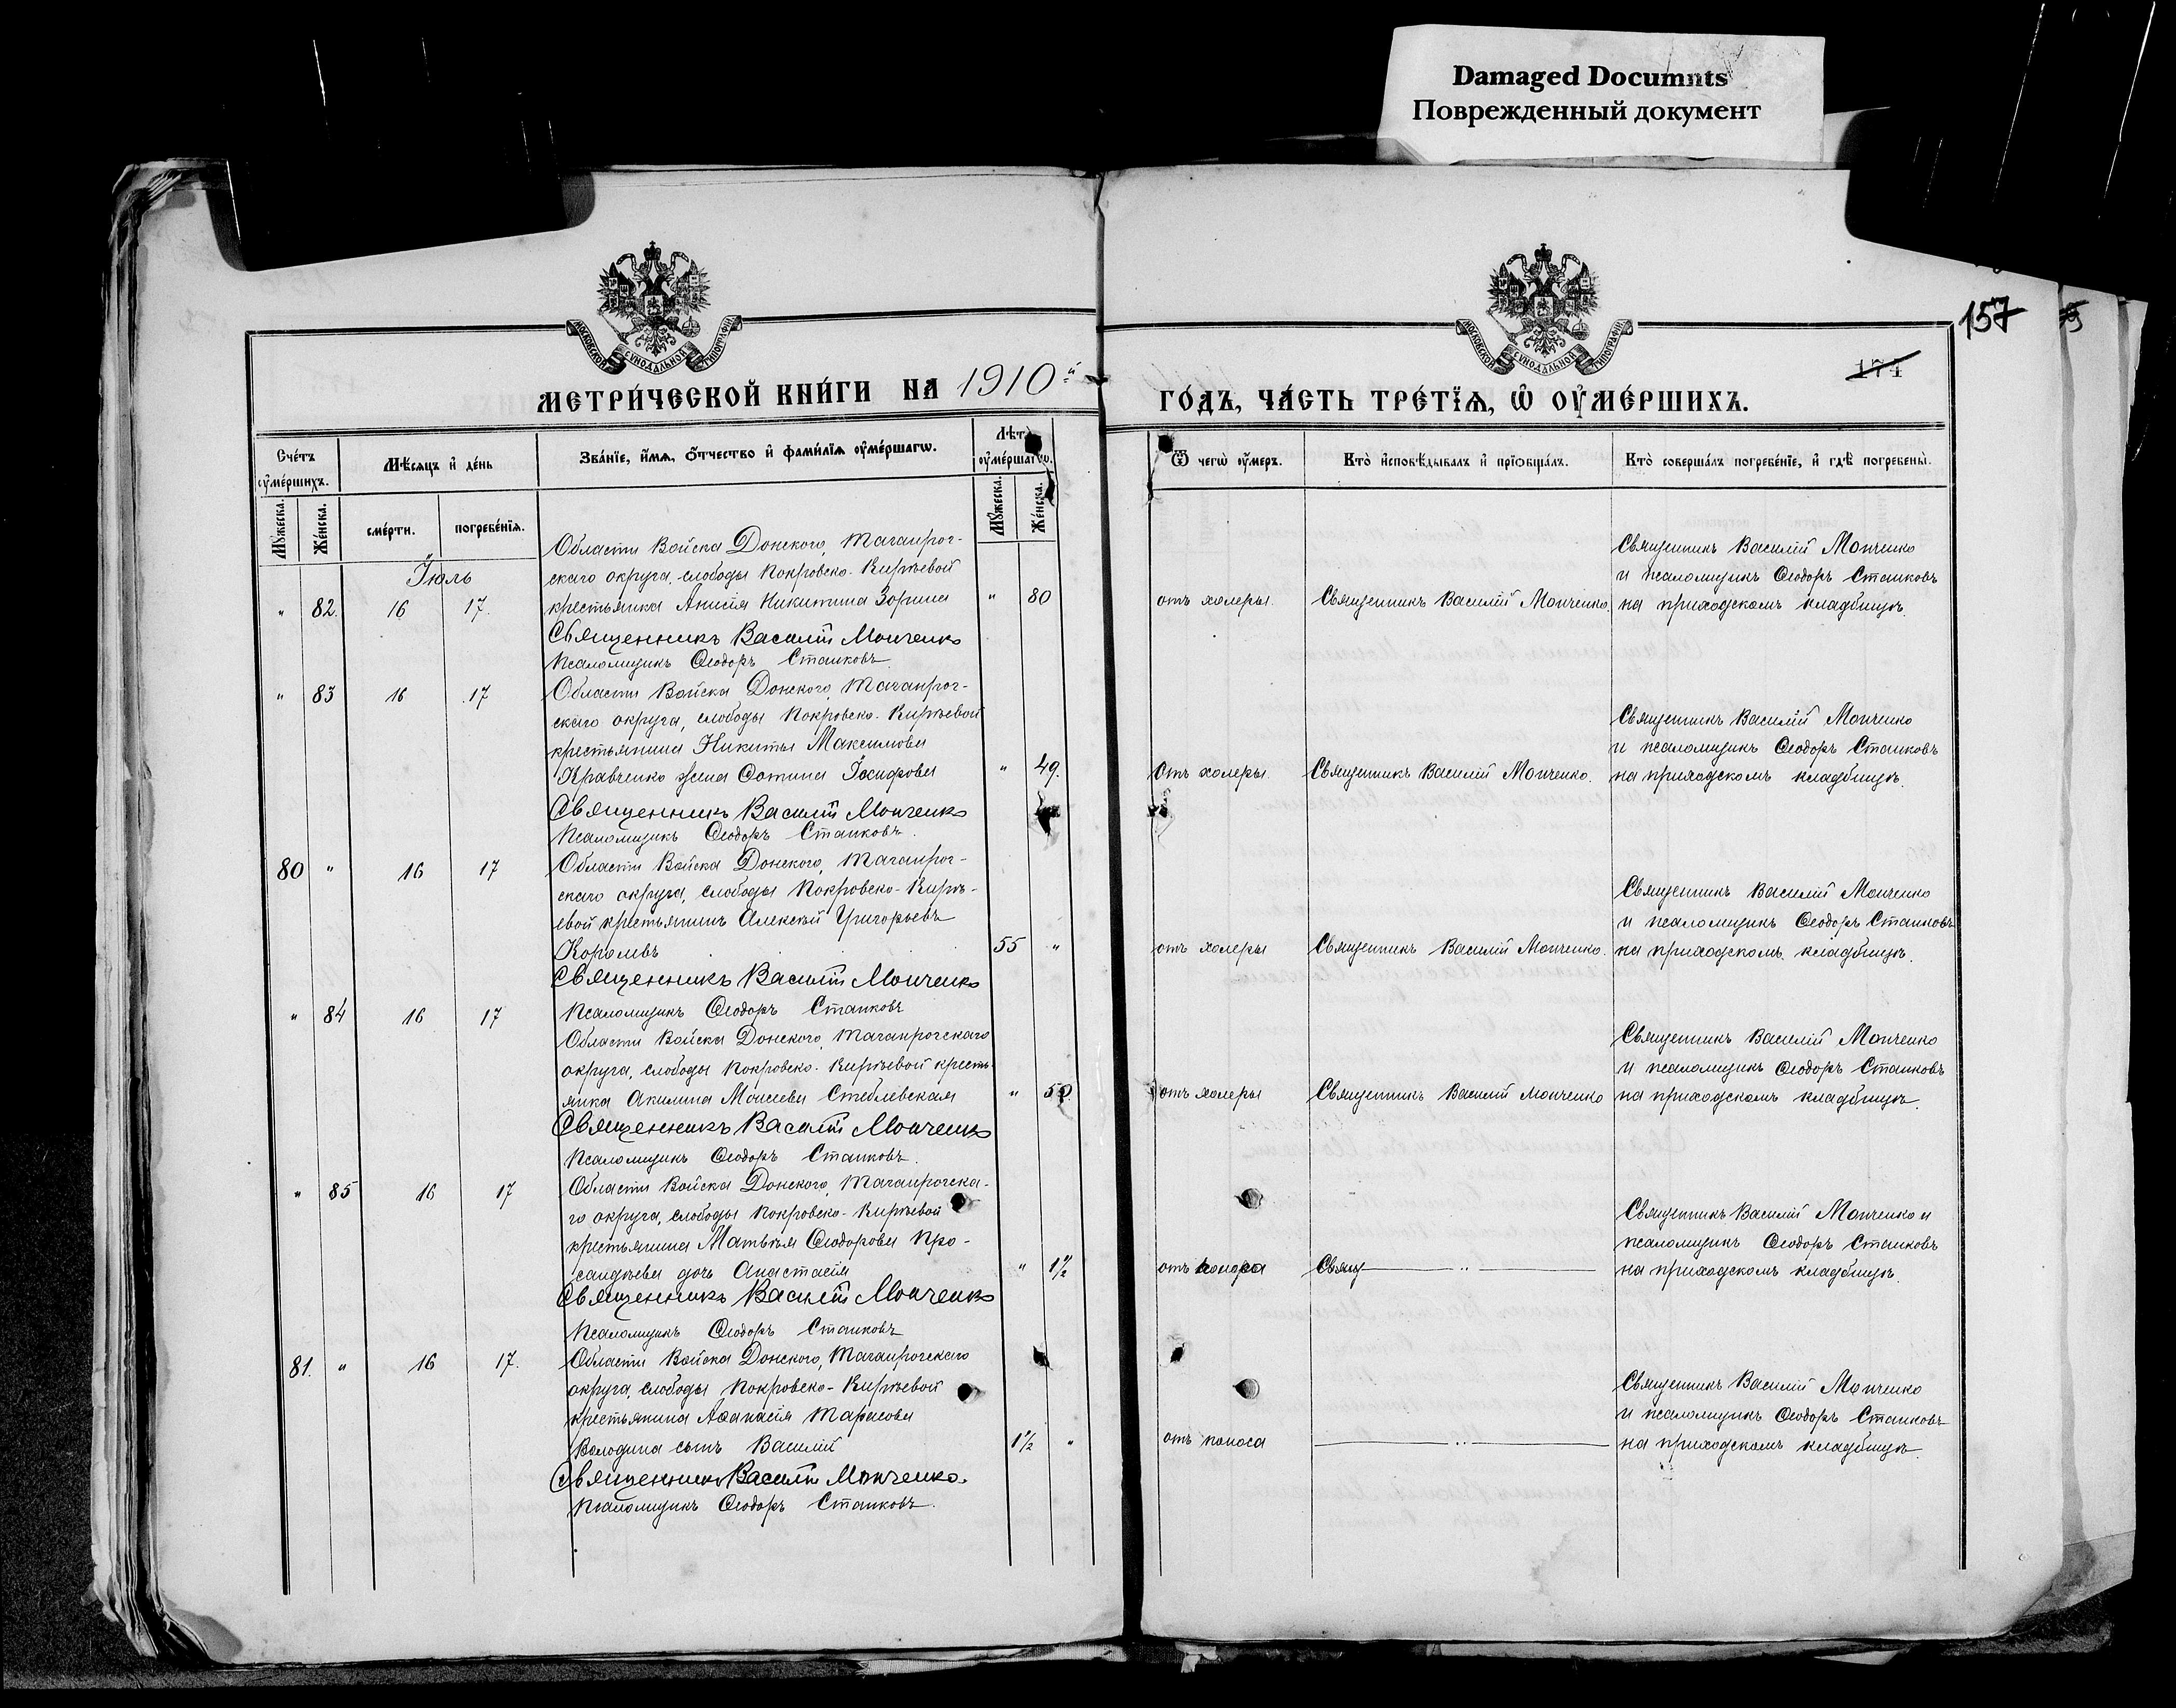 Damaged Documnts
Поврежденный документ
157
174
МОСКОВСКОЙ СѴНОДАЛЬНОЙ ТИПОГРАФІИ
МОСКОВСКОЙ СѴНОДАЛЬНОЙ ТИПОГРАФІИ
МЕТРИ́ЧЕСКОЙ КНИ́ГИ НА 1910й
ГО́ДЪ, ЧА́СТЬ ТРЕ́ТЇѦ, Ѡ҆ ОУ҆МЕ́РШИХЪ.
Сче́тъ оу҆ме́ршихъ.
Мѣ́сѧцъ и҆ де́нь
Зва́нїе, и҆́мѧ, ѻ҆́тчество и҆ фами́лїѧ оу҆ме́ршагѡ.
Лѣ́та оу҆ме́ршагѡ.
Ѿ чегѡ̀ оу҆́меръ.
Кто̀ и҆сповѣ́дывалъ и҆ прїѡбща́лъ.
Кто̀ соверша́лъ погребе́нїе, и҆ гдѣ̀ погребены̀.
Мꙋ́жеска.
Же́нска.
сме́рти.
погребе́нїѧ.
Мꙋ́жеска.
Же́нска.
Іюль
Области Войска Донского, Таганрог-
скаго округа, слободы Покровско-Кирѣевой
" 82. 16 17. крестьянка Анисія Никитина Зорина " 80
Священникъ Василій Монченко
Псаломщикъ Ѳеодоръ Станковъ.
отъ холеры. Священникъ Василій Монченко.
Священникъ Василій Монченко
и псаломщикъ Ѳеодоръ Станковъ
на приходскомъ кладбищѣ.
" 83 16 17 Области Войска Донского, Таганрог-
скаго округа, слободы Покровско-Кирѣевой
крестьянина Никиты Максимова
Кравченко жена Фотина Іосифова " 49.
Священникъ Василій Монченко
Псаломщикъ Ѳеодоръ Станковъ.
Отъ холеры. Священникъ Василій Монченко.
Священникъ Василій Монченко
и псаломщикъ Ѳеодоръ Станковъ
на приходскомъ кладбищѣ.
80 " 16 17 Области Войска Донского, Таганрог-
скаго округа, слободы Покровско-Кирѣ-
евой крестьянинъ Алексѣй Григорьевъ
55 "
Священникъ Василій Монченко
Псаломщикъ Ѳеодоръ Станковъ
отъ холеры Священникъ Василій Монченко.
Священникъ Василій Монченко
и псаломщикъ Ѳеодоръ Станковъ
на приходскомъ кладбищѣ.
" 84 16 17
Области Войска Донского, Таганрогскаго
округа, слободы Покровско-Кирѣевой кресть-
янка Акилина Моисеева Стеблевская "
Священникъ Василій Монченко
Псаломщикъ Ѳеодоръ Станковъ.
отъ холеры Священникъ Василій Монченко
Священникъ Василій Монченко
и псаломщикъ Ѳеодоръ Станковъ
на приходскомъ кладбищѣ.
" 85 16 17 Области Войска Донского, Таганрогска-
го округа, слободы Покровско-Кирѣевой
крестьянина Матвѣя Ѳеодорова Про-
дочь Анастасія " 1½
Священникъ Василій Монченко
Псаломщикъ Ѳеодоръ Станковъ
отъ поноса Свящ ——— " ———
Священникъ Василій Монченко и
псаломщикъ Ѳеодоръ Станковъ
на приходскомъ кладбищѣ.
81. " 16 17. Области Войска Донского, Таганрогскаго
округа, слободы Покровско-Кирѣевой
крестьянина Аѳанасія Тарасова
Володина сынъ Василій 1½ "
Священникъ Василій Монченко.
Псаломщикъ Ѳеодоръ Станковъ.
отъ поноса ——— " ———
Священникъ Василій Монченко
и псаломщикъ Ѳеодоръ Станковъ
на приходскомъ кладбищѣ.